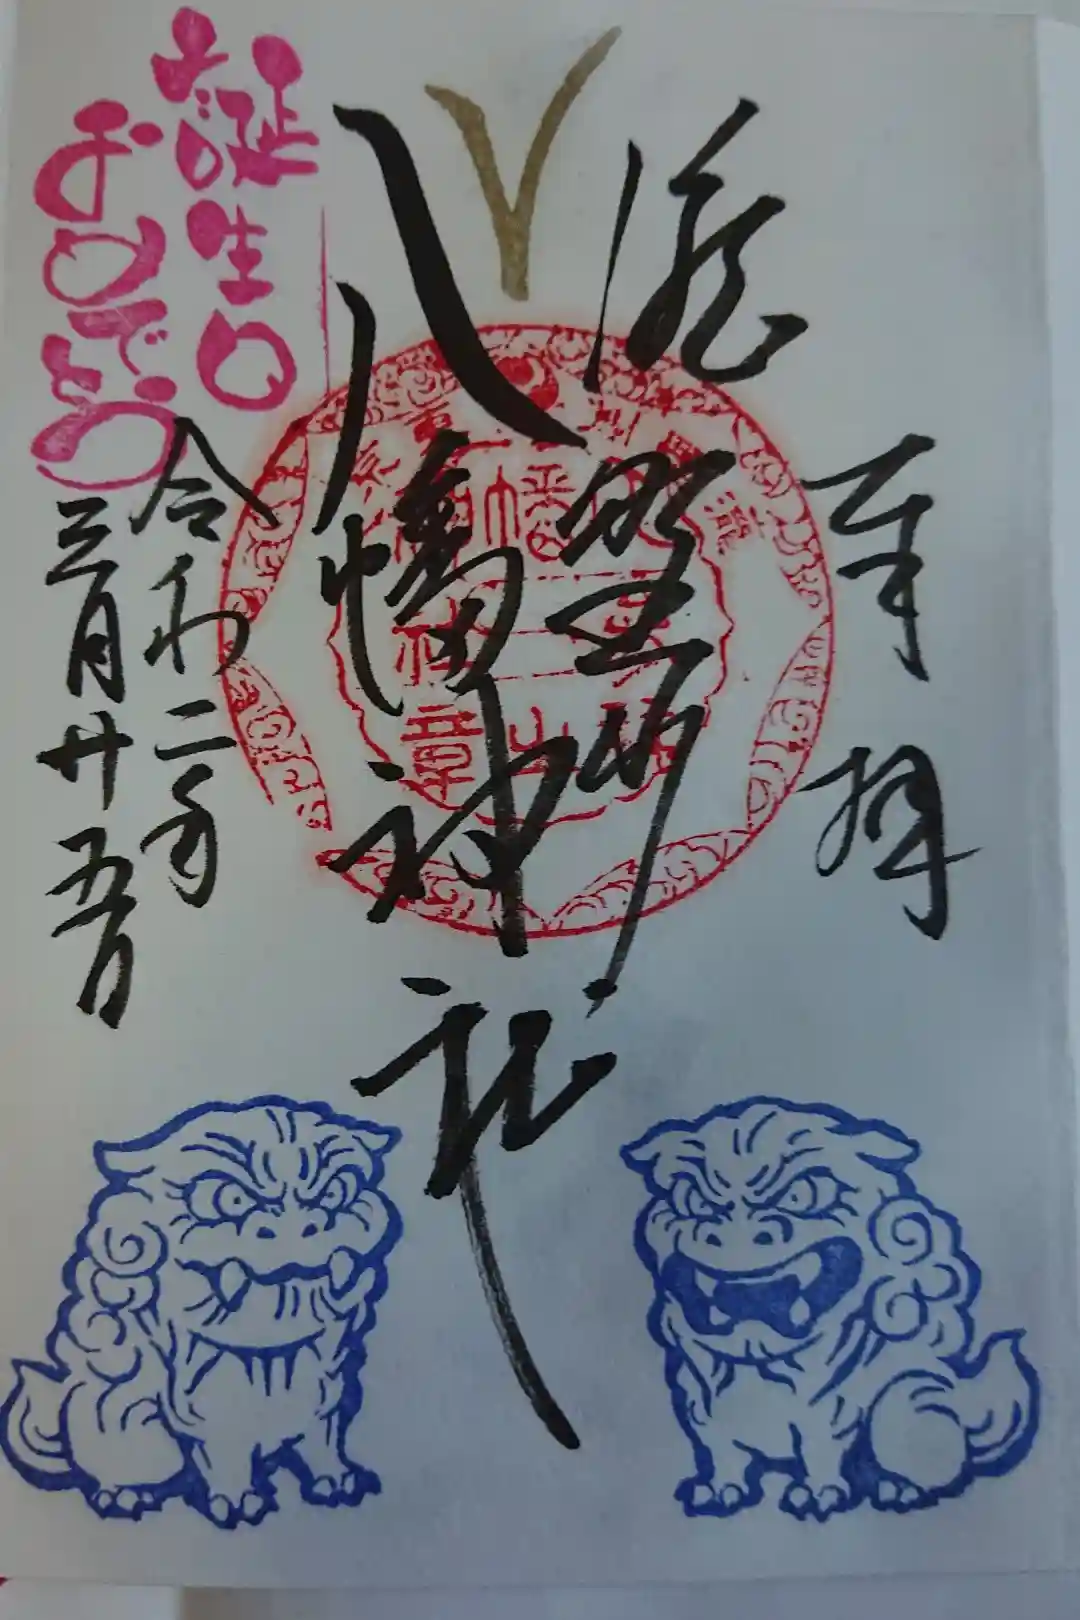 奉拝
瀧野川
八幡神社
お誕生日
おめでとう
令和二年
三月廿五日